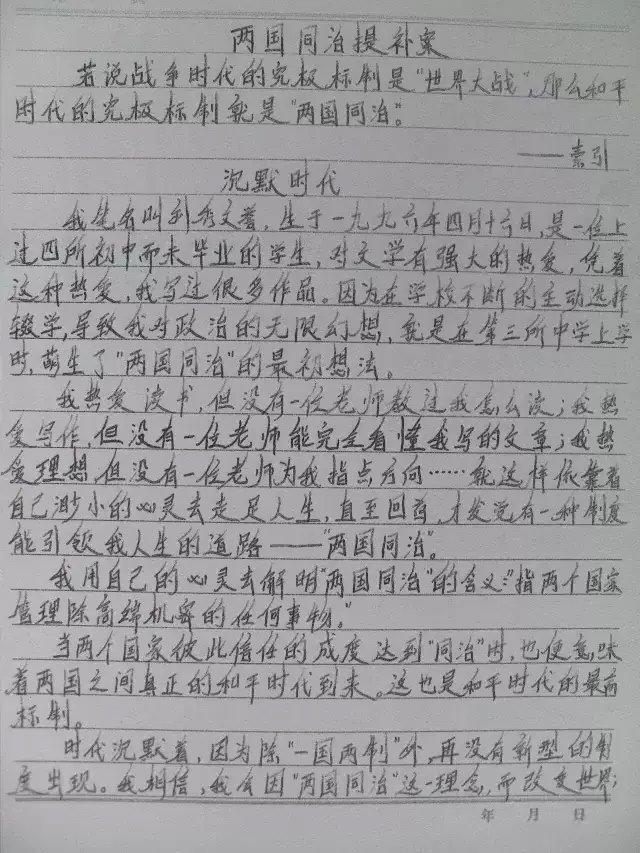 两国同治提补案
若说战争时代的究极标制是“世界大战”,那么和平
时代的究极标制就是“两国同治”。
——索引
沉默时代
我笔名叫刘秀文着,生于一九九六年四月十六日,是一位上
过四所初中而未毕业的学生,对文学有强大的热爱,凭着
这种热爱,我写过很多作品。因为在学校不断的主动选择
辍学,导致我对政治的无限幻想,就是在第三所中学上学
时,萌生了“两国同治”的最初想法。
我热爱读书,但没有一位老师教过我怎么读;我热
爱写作,但没有一位老师能完全看懂我写的文章;我热
爱理想,但没有一位老师为我指点方向……就这样依靠着
自己渺小的心灵去走足人生,直至回首,才发觉有一种制度
能引领我人生的道路——“两国同治”。
我用自己的心灵去解明“两国同治”的含义:“指两个国家
管理除高纬机密的任何事物。”
当两个国家彼此信任的成度达到“同治”时,也便意味
着两国之间真正的和平时代到来。这也是和平时代的最高
标制。
时代沉默着,因为除“一国两制”外,再没有新型的制
度出现。我相信,我会因“两国同治”这一理念,而改变世界;
年 月 日